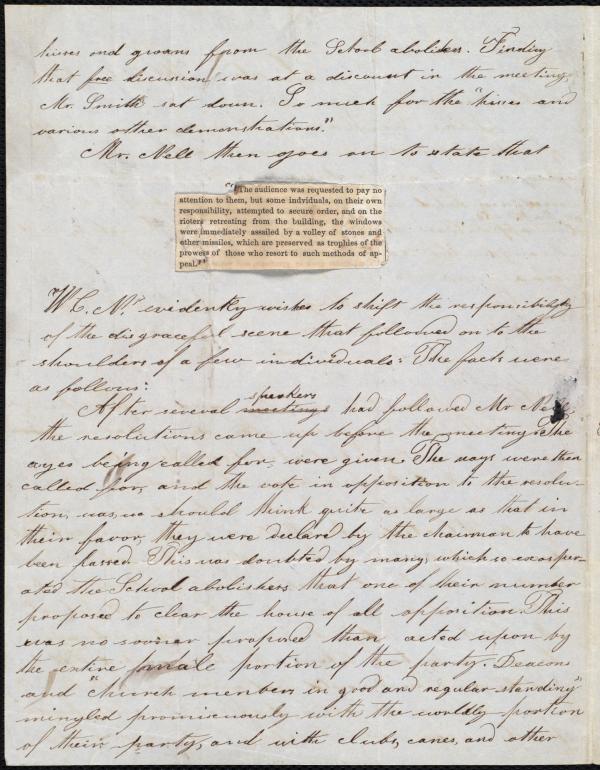 hisses and groans from the School abolishers. Finding
that free discussion was at a discount in the meeting,
Mr. Smith sat down. So much for the "hisses and
various other demonstrations."
Mr. Nell then goes on to state that
"The audience was requested to pay no
attention to them, but some indviduals, on their own
responsibility, attempted to secure order, and on the
rioters retreating from the building, the windows
were immediately assailed by a volley of stones and
other missiles, which are preserved as trophies of the
prowess of those who resort to such methods of ap-
peal."
W. C. N. evidently wishes to shift the responsibility
of the disgraceful scene that followed on to the
shoulders of a few individuals: The facts were
as follows:
speakers
After several meetings had followed Mr Nell,
the resolutions came up before the meeting. The
ayes being called for, were given. The nays were then
called for, and the vote in opposition to the resolu-
tion, was, we should think quite as large as that in
their favor, they were declared by the chairman to have
been passed. This was doubted by many, which so exasper-
ated the School abolishers that one of their number
proposed to clear the house of all opposition. This
was no sooner proposed than acted upon by
the entire male portion of the party. Deacons
and "church members in good and regular standing"
mingled promiscuously with the worldly portion
of their party, and with clubs, canes, and other